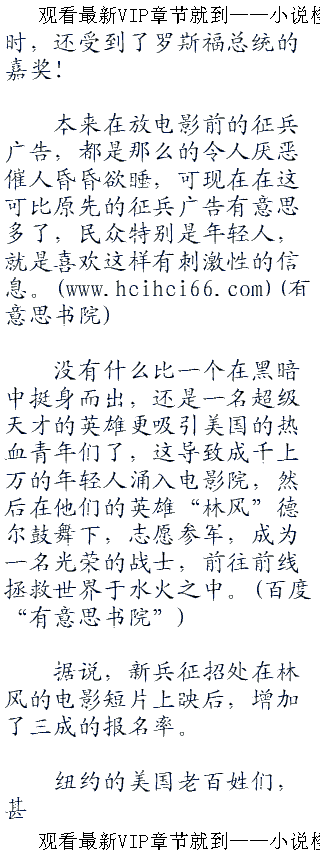 观看最新VIP章节就到——小说
时，还受到了罗斯福总统的
嘉奖！
本来在放电影前的征兵
广告，都是那么的令人厌恶
催人昏昏欲睡，可现在在这
可比原先的征兵广告有意思
多了，民众特别是年轻人，
就是喜欢这样有刺激性的信
息。(www.hcihci66.com)(有
意思书院)
没有什么比一个在黑暗
中挺身而出，还是一名超级
天才的英雄更吸引美国的热
血青年们了，这导致成千上
万的年轻人涌入电影院，然
后在他们的英雄“林风”德
尔鼓舞下，志愿参军，成为
一名光荣的战士，前往前线
拯救世界于水火之中。(百度
“有意思书院”)
据说，新兵征招处在林
风的电影短片上映后，增加
了三成的报名率。
纽约的美国老百姓们，
甚
观看最新VIP章节就到——小说